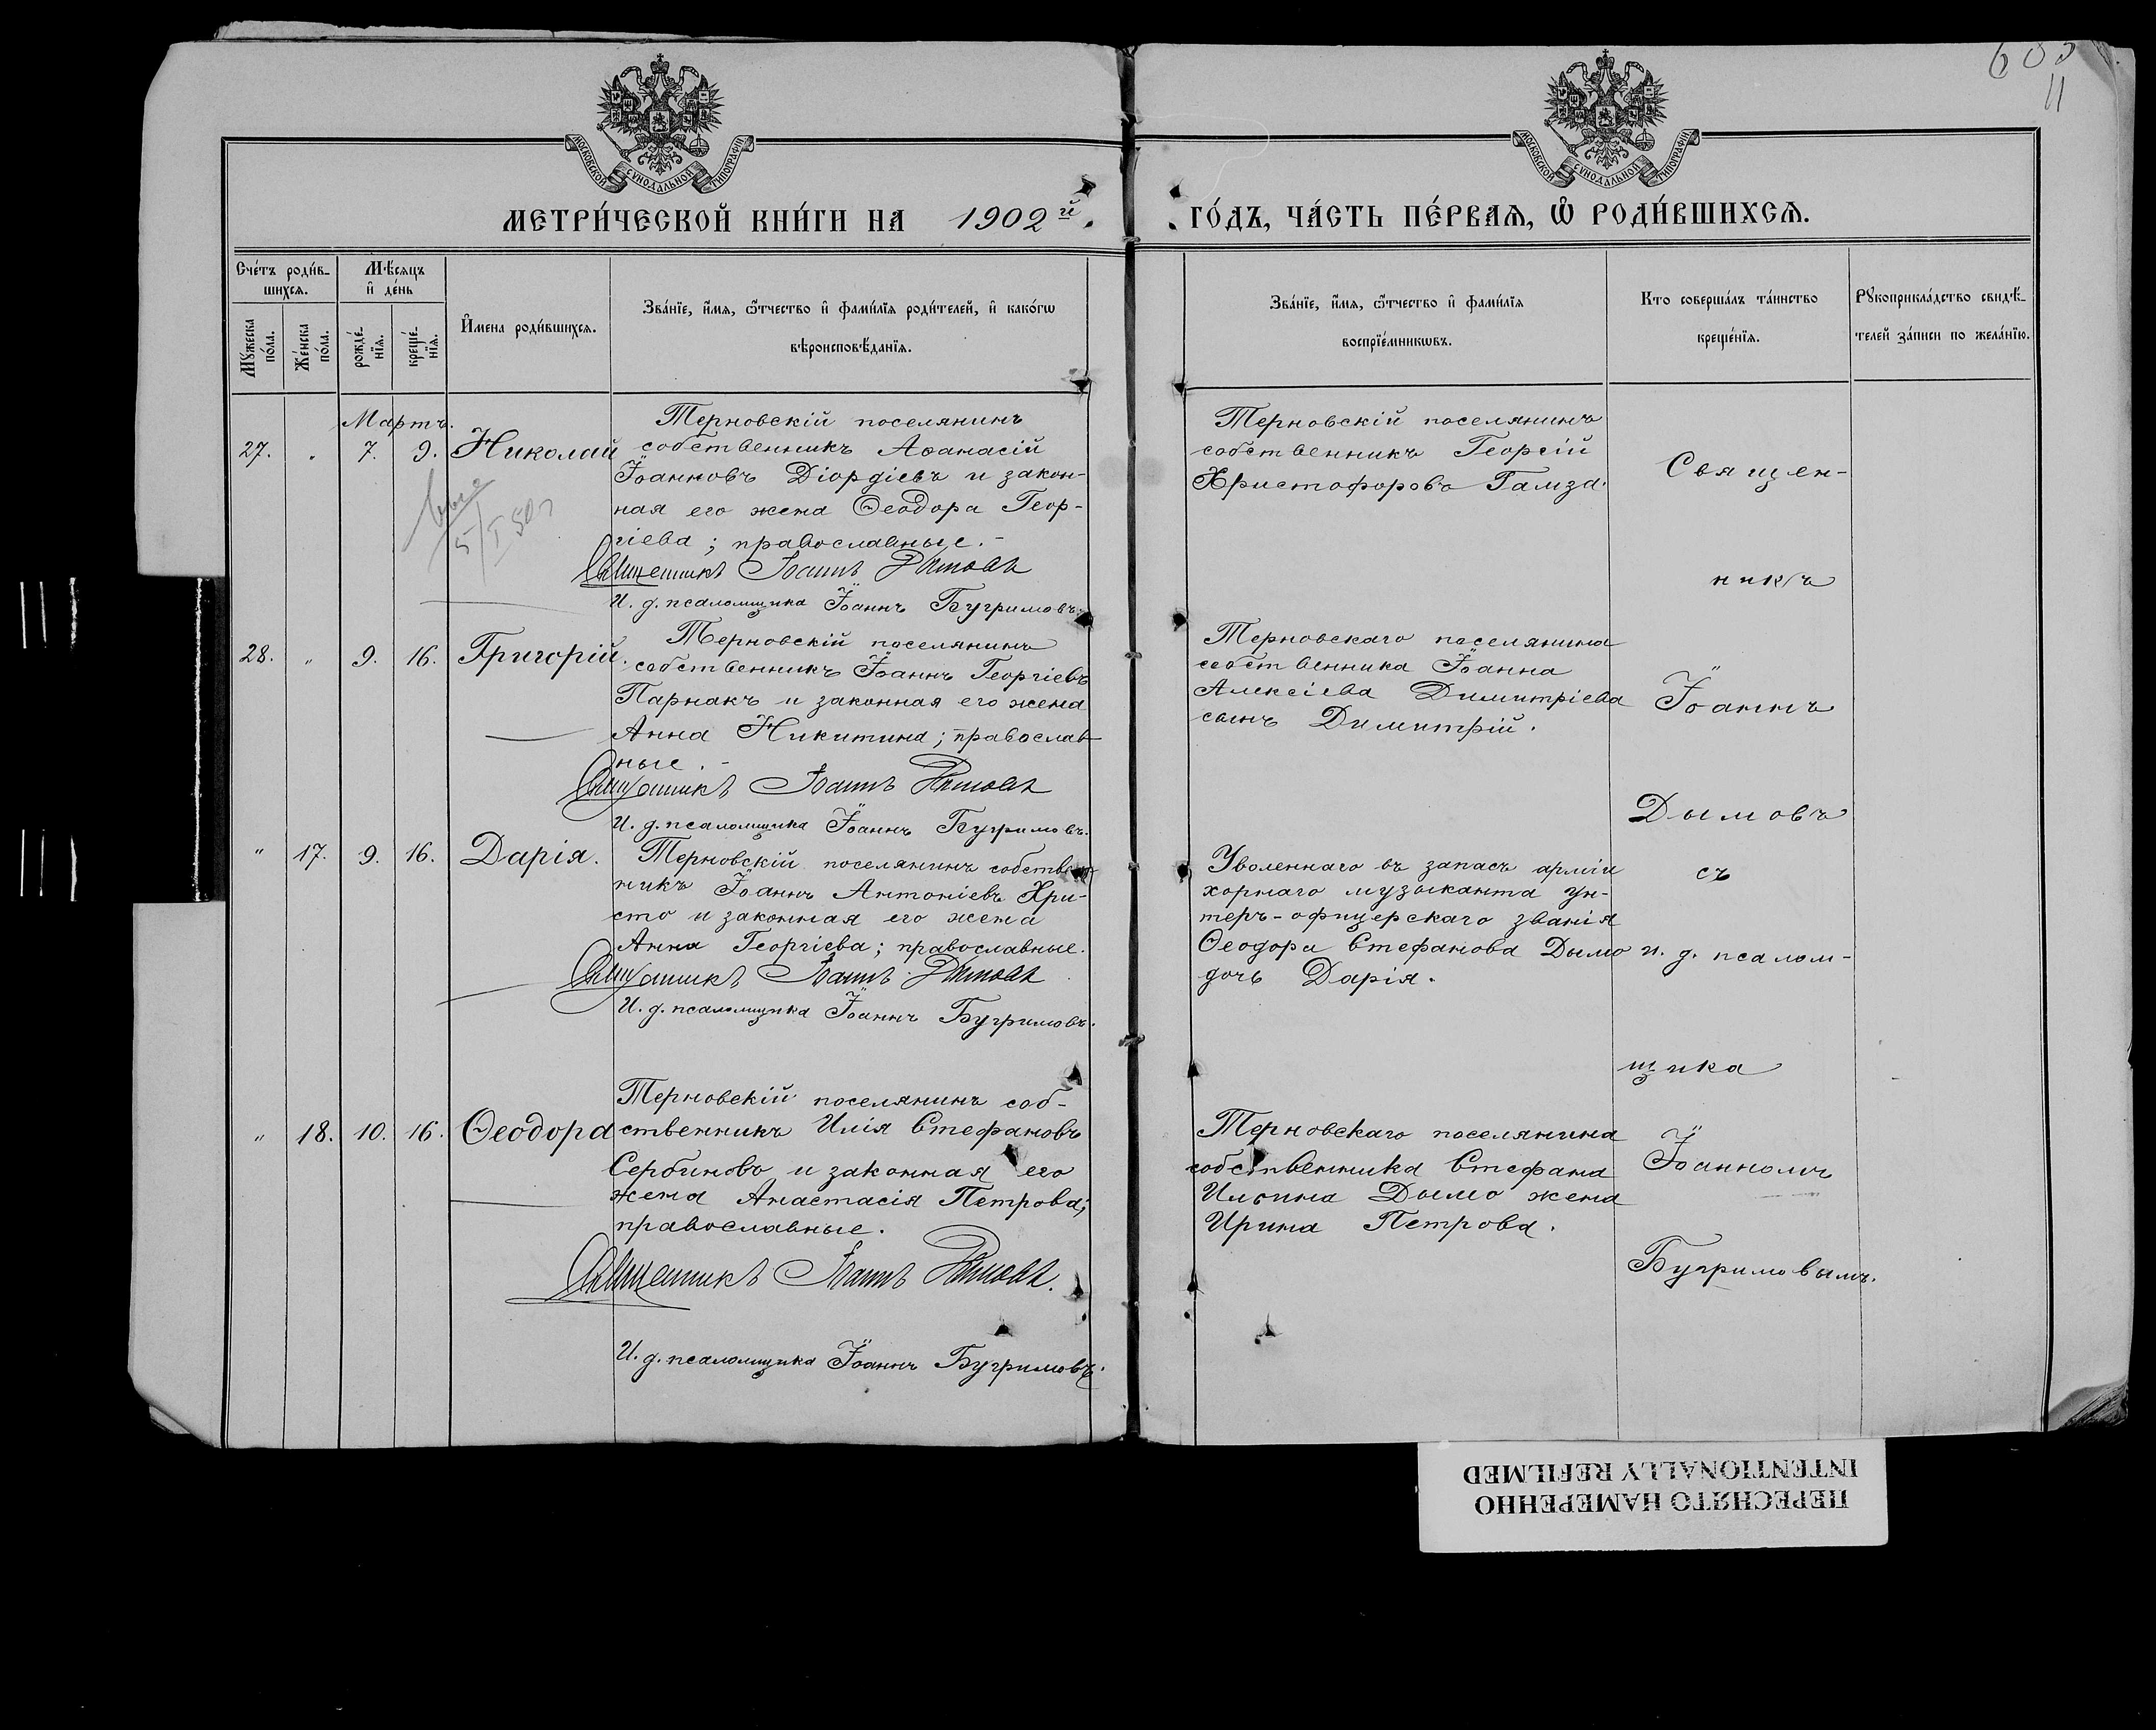 683
11
МОСКОВСКОЙ СѴНОДАЛЬНОЙ ТИПОГРАФІИ
МОСКОВСКОЙ СѴНОДАЛЬНОЙ ТИПОГРАФІИ
МЕТРИ́ЧЕСКОЙ КНИ́ГИ НА 1902й
ГО́ДЪ, ЧА́СТЬ ПЕ́РВАѦ, Ѡ҆ РОДИ́ВШИХСѦ.
Сче́тъ роди́в-
шихсѧ.
Мꙋ́жеска по́ла.
Же́нска по́ла.
Мѣ́сѧцъ
и҆ де́нь
рожде́-
нїѧ.
креще́-
нїѧ.
И҆мена роди́вшихсѧ.
Зва́нїе, и҆́мѧ, ѻ҆́тчество и҆ фами́лїѧ роди́телей, и҆ како́гѡ
вѣроисповѣ́данїѧ.
Зва́нїе, и҆́мѧ, ѻ҆́тчество и҆ фами́лїѧ
воспрїе́мникѡвъ.
Кто соверша́лъ та́инство
креще́нїѧ.
Рꙋкоприкла́дство свидѣ́-
телей за́писи по жела́нїю.
Мартъ.
27. „ 7. 9. Николай
Терновскій поселянинъ
собственникъ Аѳанасій
Іоанновъ Діордіевъ и закон-
ная его жена Ѳеодора Геор-
гіева; православные.-
Священникъ Іоаннъ Дымовъ
И. д. псаломщика Іоаннъ Бугримовъ.
Терновскій поселянинъ
собственникъ Георгій
Христофоровъ Гамза.
28. „ 9. 16. Григорій.
Терновскій поселянинъ
собственникъ Іоаннъ Георгіевъ
Парнакъ и законная его жена
Анна Никитина; православ-
ные.-
Священникъ Іоаннъ Дымовъ
И. д. псаломщика Іоаннъ Бугримовъ.
Терновскаго поселянина
собственника Іоанна
Алексіева Димитріева
сынъ Димитрій.
„ 17. 9. 16. Дарія.
Терновскій поселянинъ собствен-
никъ Іоаннъ Антоніевъ Хри-
сто и законная его жена
Анна Георгіева; православные.
Священникъ Іоаннъ Дымовъ
И. д. псаломщика Іоаннъ Бугримовъ.
Уволеннаго въ запасъ арміи
хорнаго музыканта ун-
теръ-офицерскаго званія
Ѳеодора Стефанова Дымо
дочь Дарія.
„ 18. 10. 16. Ѳеодора
Терновскій поселянинъ соб-
ственникъ Илія Стефановъ
Сербиновъ и законная его
жена Анастасія Петрова;
православные.
Священникъ Іоаннъ Дымовъ.
И. д. псаломщика Іоаннъ Бугримовъ.
Терновскаго поселянина
собственника Стефана
Ильина Дымо жена
Ирина Петрова.
Священ-
никъ
Іоаннъ
Дымовъ
съ
и. д. псалом-
щика
Іоанномъ
Бугримовымъ.
ПЕРЕСНЯТО НАМЕРЕННО
INTENTIONALLY REFILMED